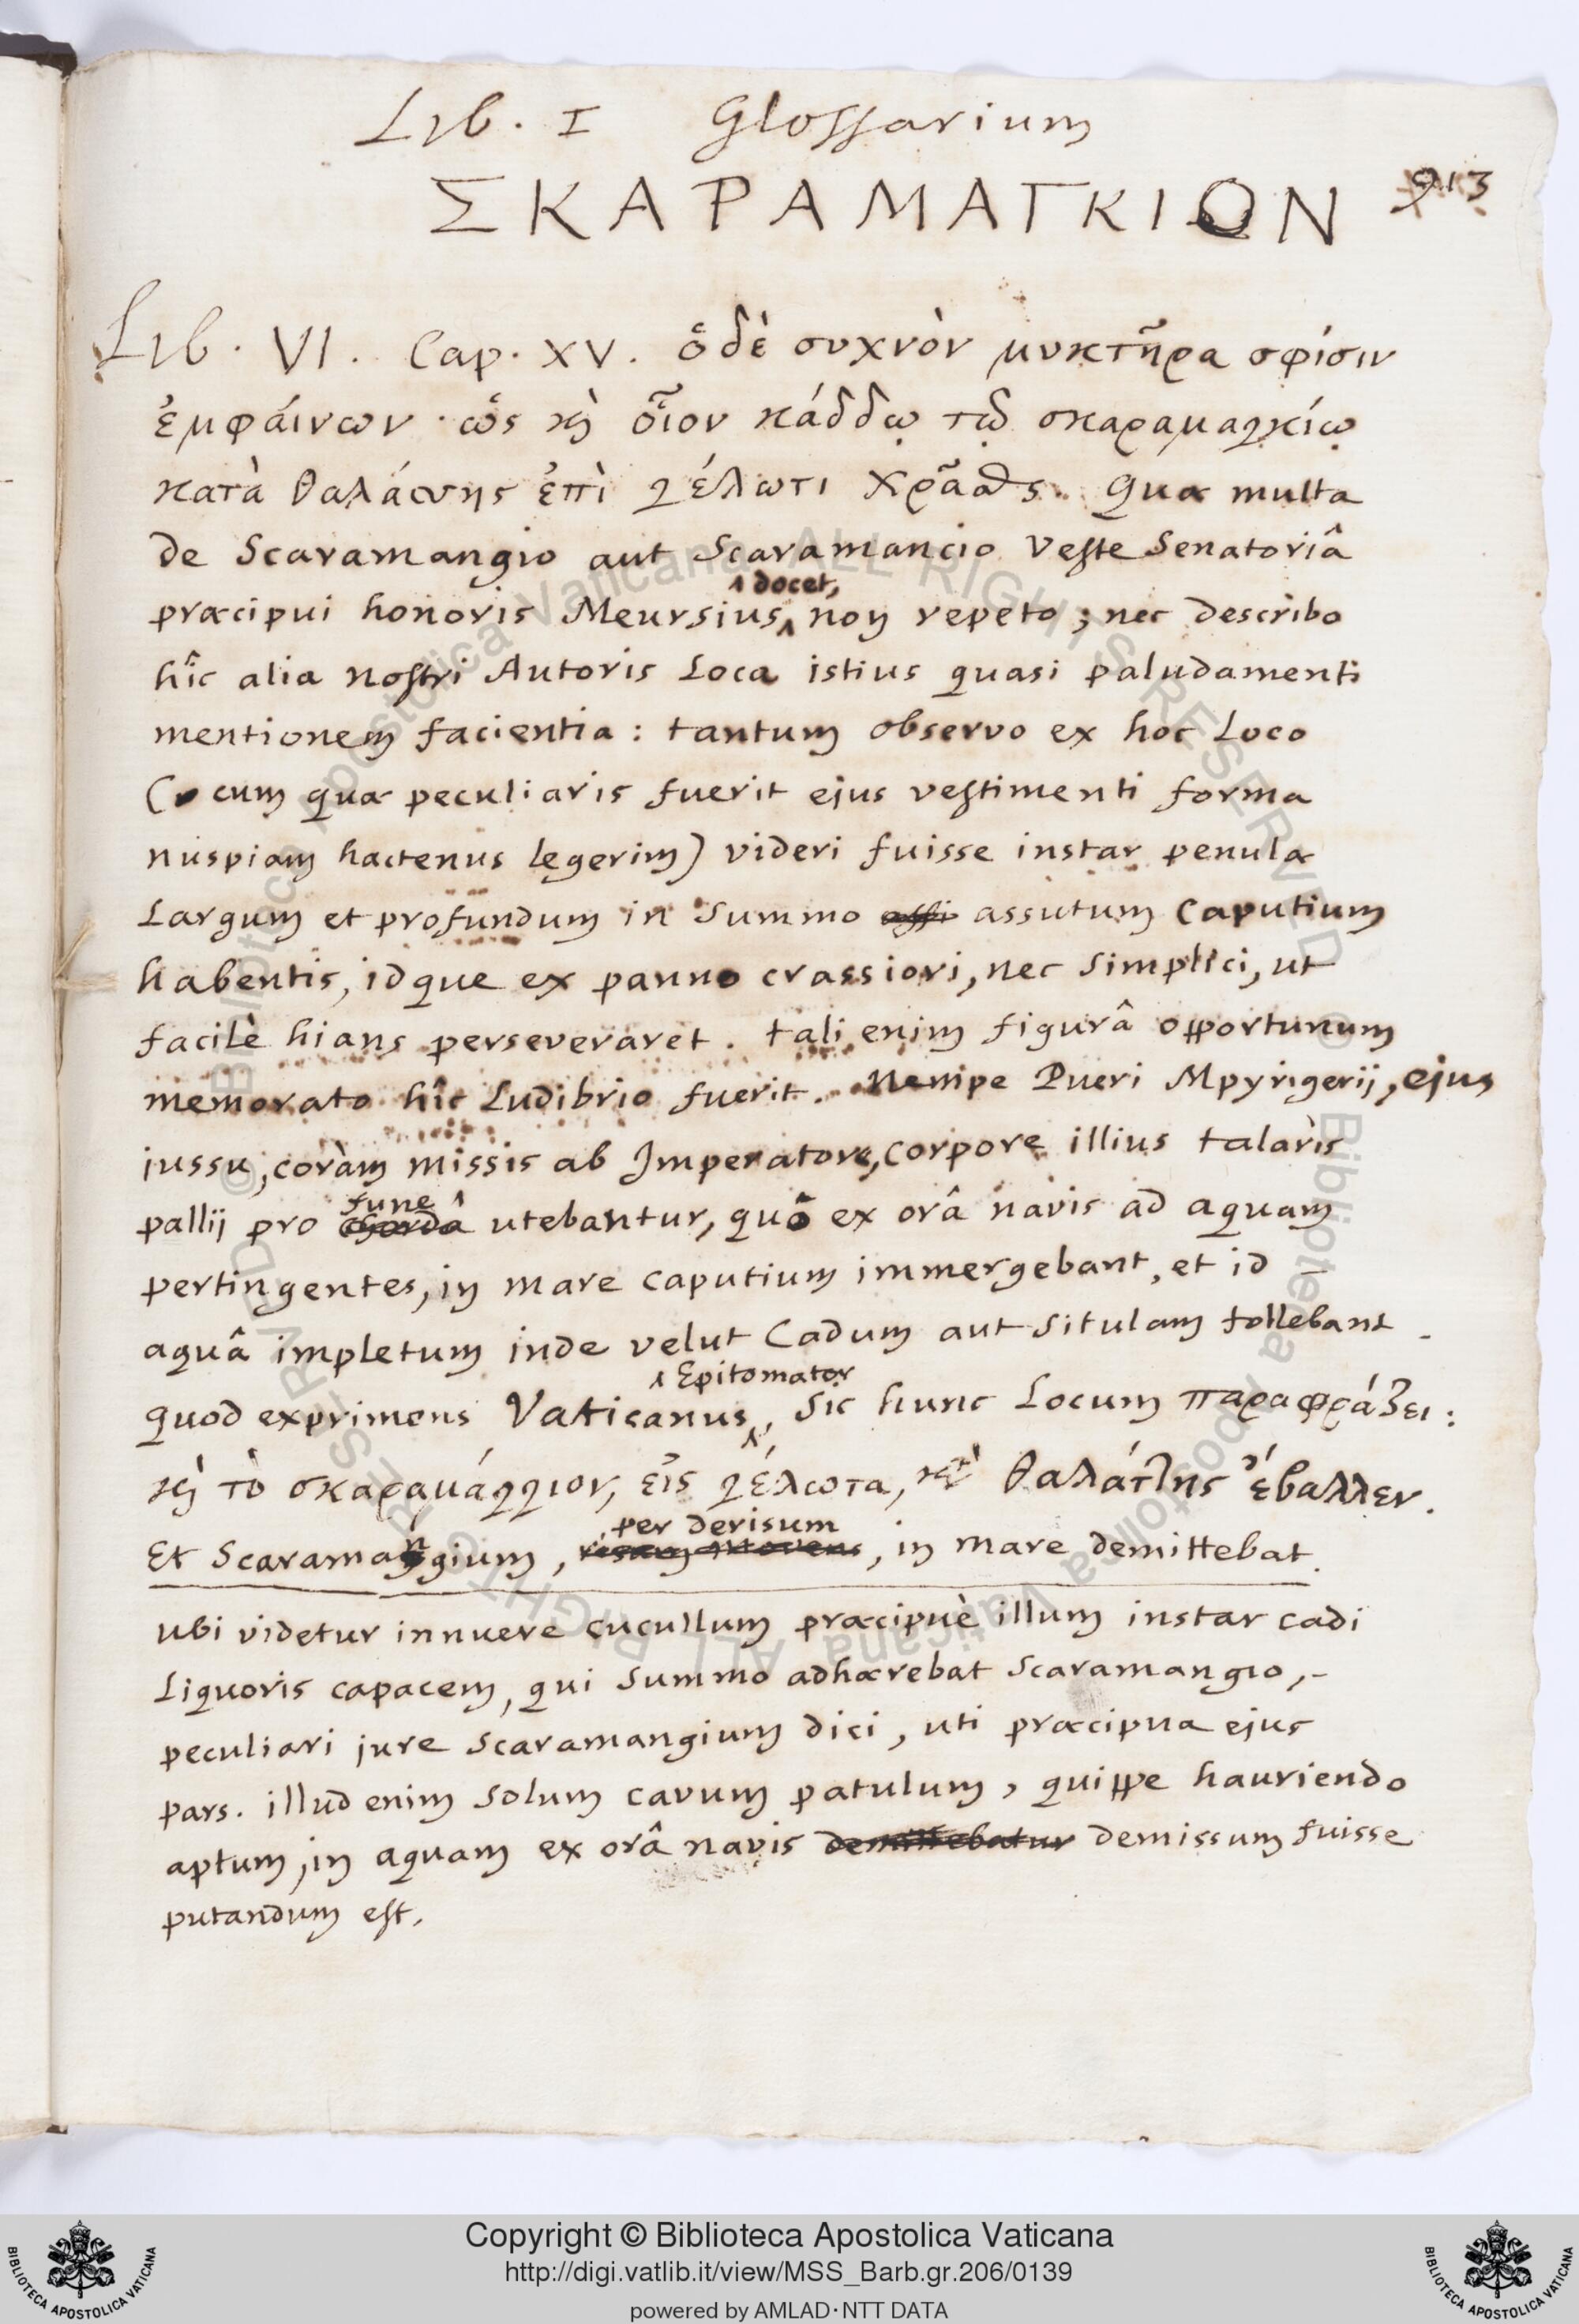 Lib. I Glossarium
ΣΚΑΡΑΜΑΓΚΙΟΝ 913
Lib. VI. Cap. XV. ὃ δὲ συχνὸν μυκτῆρα σφίσιν
ἐμφάινων· ὡς κὴ οἷον κάδδῳ τῷ σκαραμαγκίῳ
κατὰ θαλάσσης ἐπὶ γέλωτι χρᾶσθαι. Quæ multa
de Scaramangio aut Scaramancio Veste Senatoriâ
præcipui honoris Meursius docet, non repeto; nec describo
hîc alia nostri Autoris Loca istius quasi paludamenti
mentionem facientia: tantum observo ex hoc Loco
(cum quæ peculiaris fuerit ejus vestimenti forma
nuspiam hactenus legerim) videri fuisse instar penulæ
Largum et profundum in Summo assutum Caputium
habentis, idque ex panno crassiori, nec Simplici, ut
facilè hians perseveraret. tali enim figurâ opportunum
memorato hîc Ludibrio fuerit. Nempe Pueri Mpyrigerij, ejus
jussu, coràm missis ab Imperatore, corpore illius talaris
pallij pro fune utebantur, quô ex orâ navis ad aquam
pertingentes, in mare caputium immergebant, et id
aquâ impletum inde velut Cadum aut Situlam tollebant.
quod exprimens Vaticanus Epitomator, Sic hunc Locum παραφράζει:
κὴ τὸ σκαραμάγγιον, εἰς γέλωτα, κτ̀ θαλάττης ἔβαλλεν.
Et Scaramangium, per derisum, in mare demittebat.
ubi videtur innuere cucullum præcipuè illum instar cadi
Liquoris capacem, qui Summo adhærebat Scaramangio,
peculiari jure Scaramangium dici, uti præcipua ejus
pars. illud enim Solum cavum patulum, quippe hauriendo
aptum, in aquam ex orâ navis demittebatur demissum fuisse
putandum est.
Copyright © Biblioteca Apostolica Vaticana
http://digi.vatlib.it/view/MSS_Barb.gr.206/0139
powered by AMLAD·NTT DATA
BIBLIOTECA APOSTOLICA VATICANA
BIBLIOTECA APOSTOLICA VATICANA